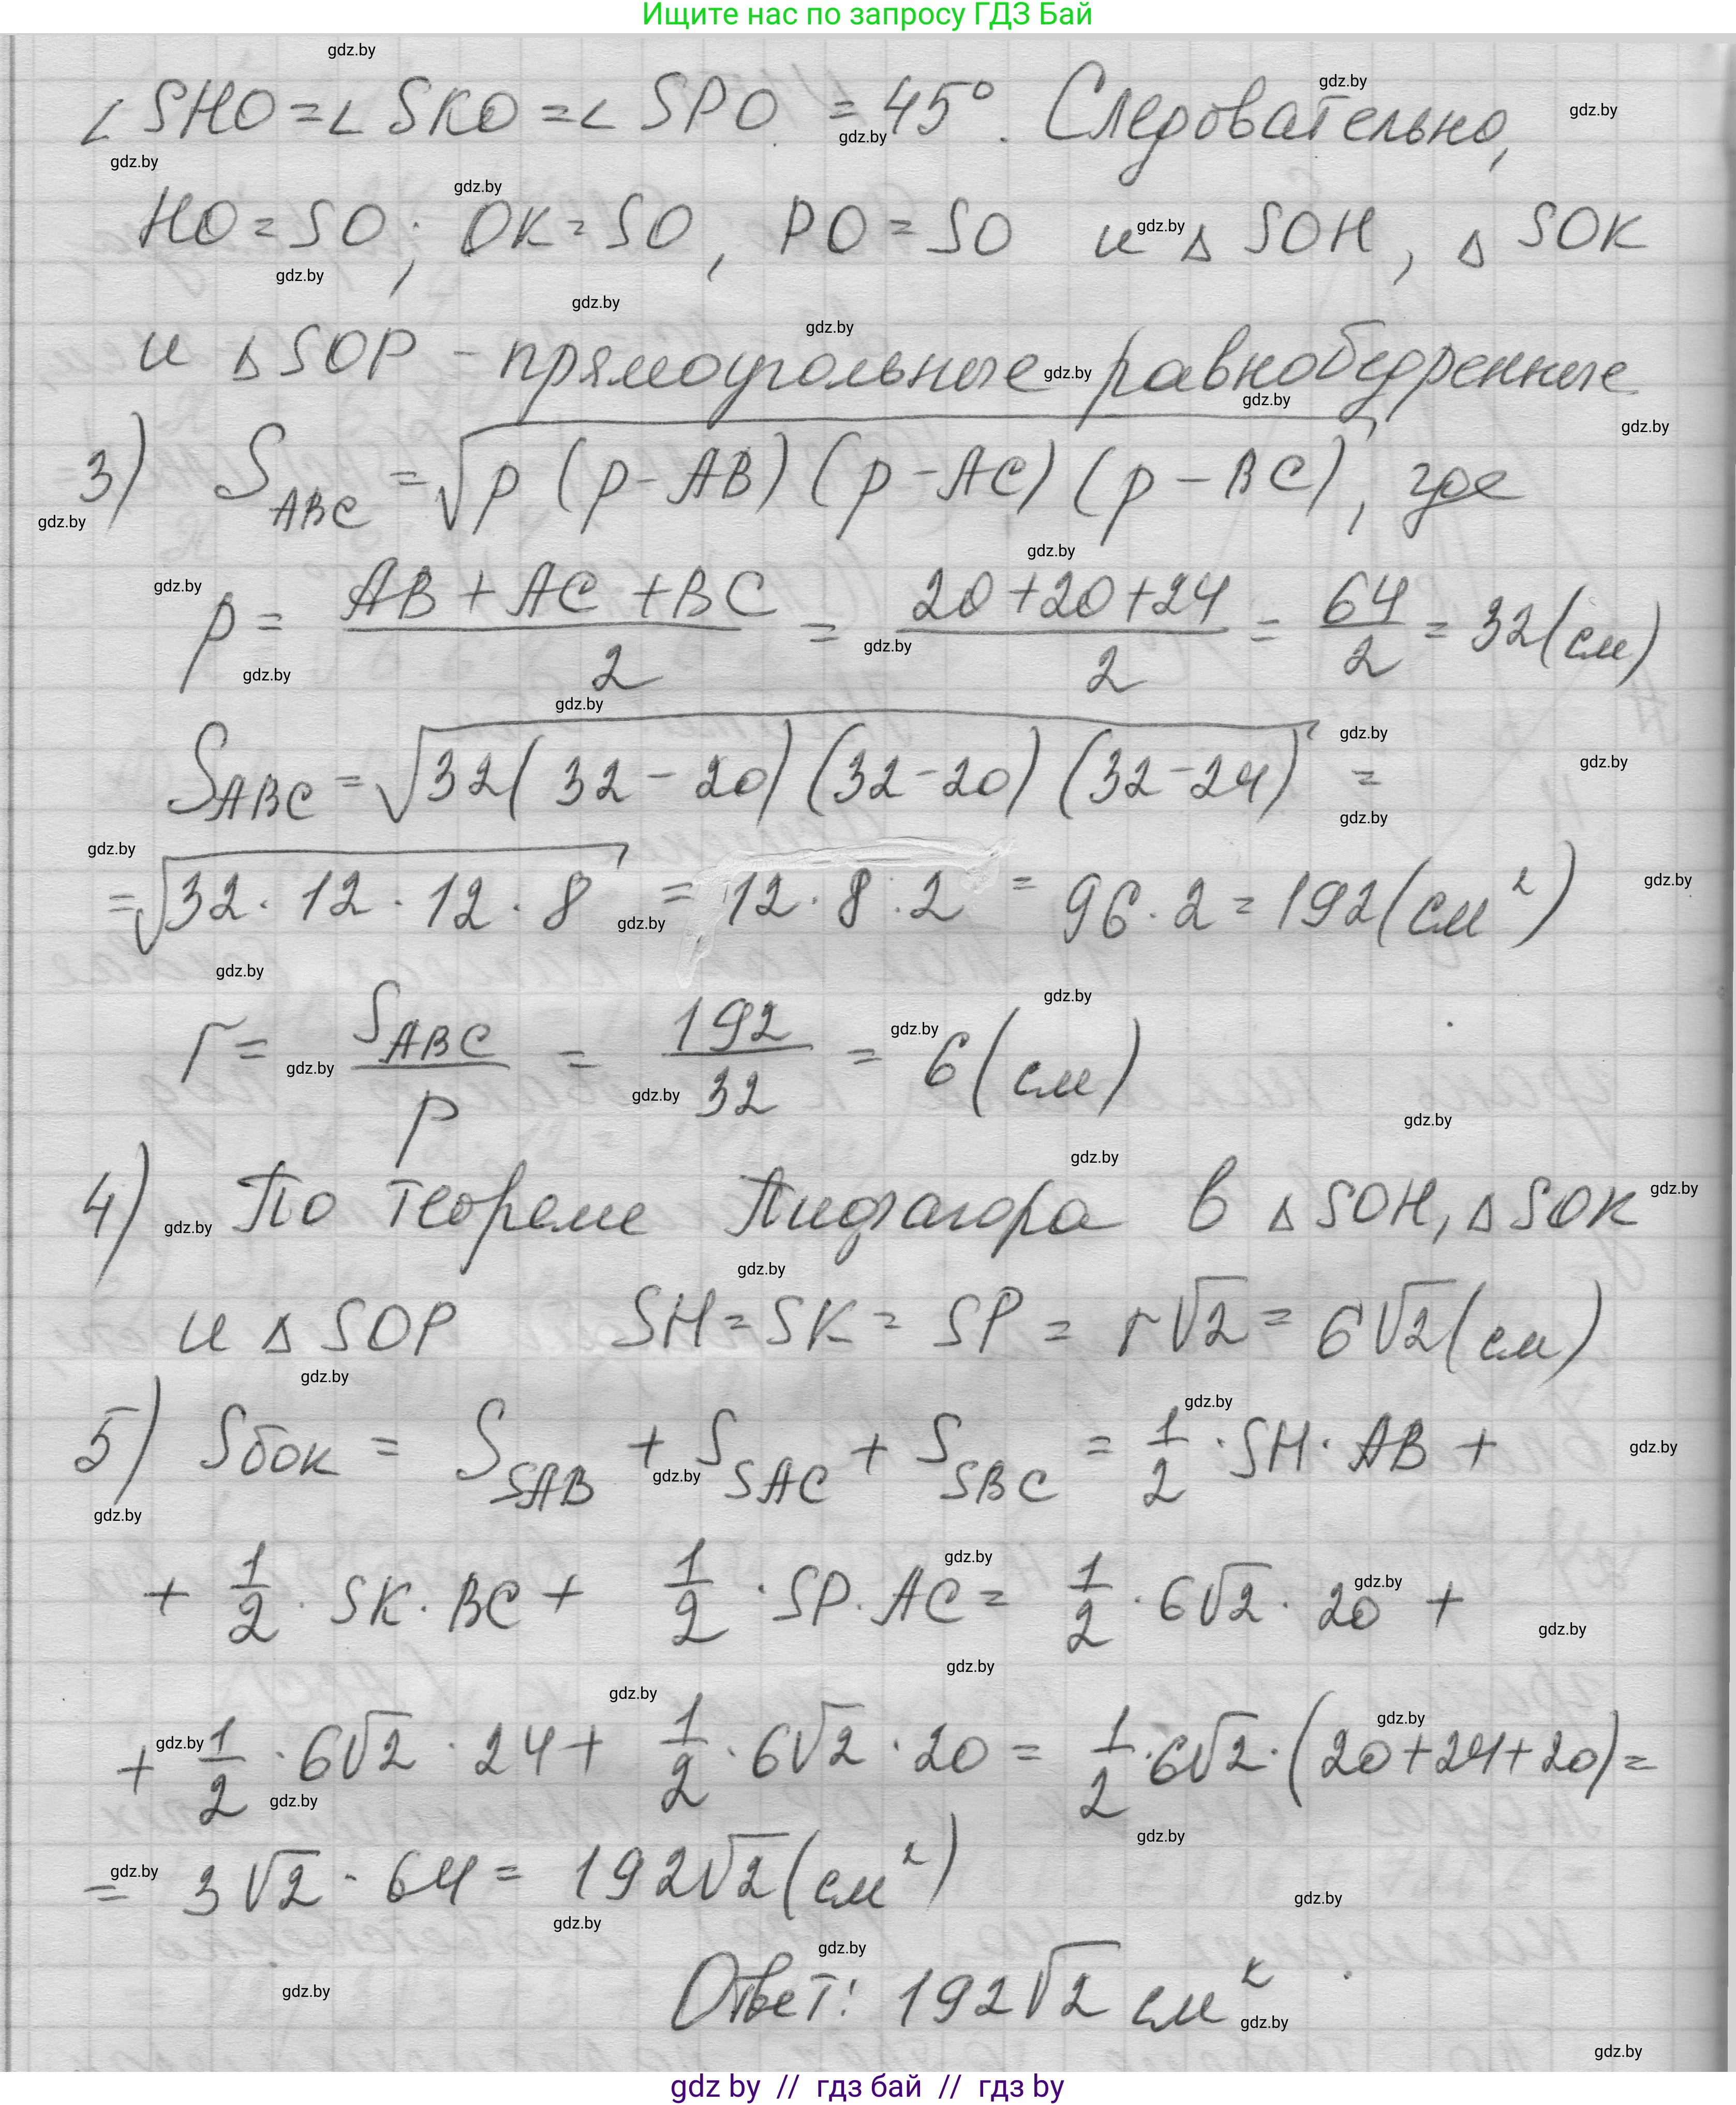 Ищите нас по запросу ГДЗ Бай
∠ SHO = ∠ SKO = ∠ SPO = 45°. Следовательно,
HO = SO; OK = SO, PO = SO и △ SOH, △ SOK
и △ SOP - прямоугольные равнобедренные
3) S_ABC = √(p (p - AB) (p - AC) (p - BC)), где
p = (AB + AC + BC)/2 = (20 + 20 + 24)/2 = 64/2 = 32 (см)
S_ABC = √(32 (32 - 20) (32 - 20) (32 - 24)) =
= √(32 · 12 · 12 · 8) = 12 · 8 · 2 = 96 · 2 = 192 (см²)
r = S_ABC/p = 192/32 = 6 (см)
4) По теореме Пифагора в △ SOH, △ SOK
и △ SOP SH = SK = SP = r√2 = 6√2 (см)
5) Sбок = S_SAB + S_SAC + S_SBC = 1/2 · SH · AB +
+ 1/2 · SK · BC + 1/2 · SP · AC = 1/2 · 6√2 · 20 +
+ 1/2 · 6√2 · 24 + 1/2 · 6√2 · 20 = 1/2 · 6√2 · (20 + 24 + 20) =
= 3√2 · 64 = 192√2 (см²)
Ответ: 192√2 см²
gdz by // гдз бай // гдз by